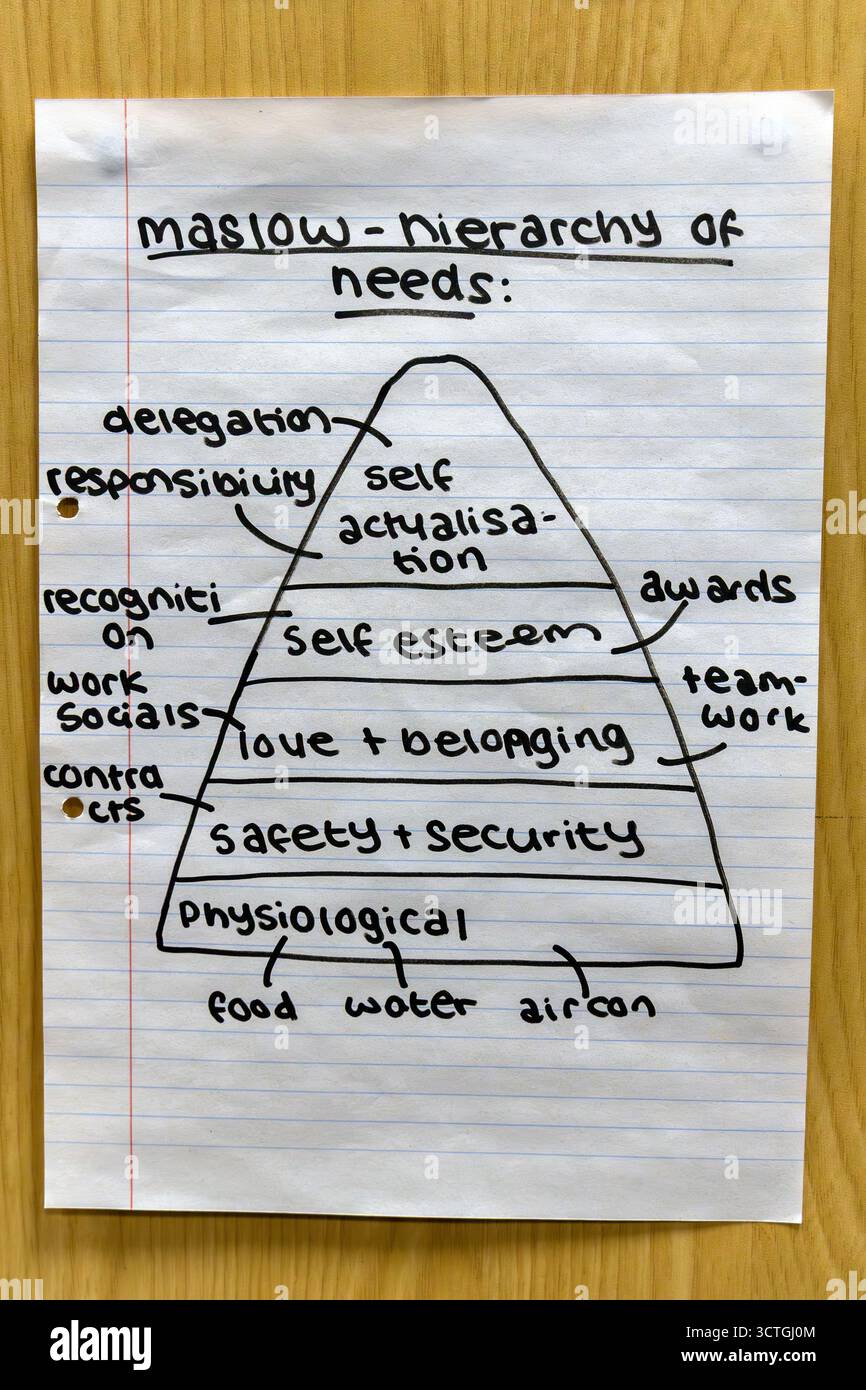 maslow - hierarchy of
needs:
delegation
responsibility
self
actualisa-
tion
recogniti
on
self esteem
awards
work
socials
love + belonging
team-
work
contra
cts
safety + security
physiological
food water aircon
alamy
alamy
Image ID: 3CTGJ0M
www.alamy.com